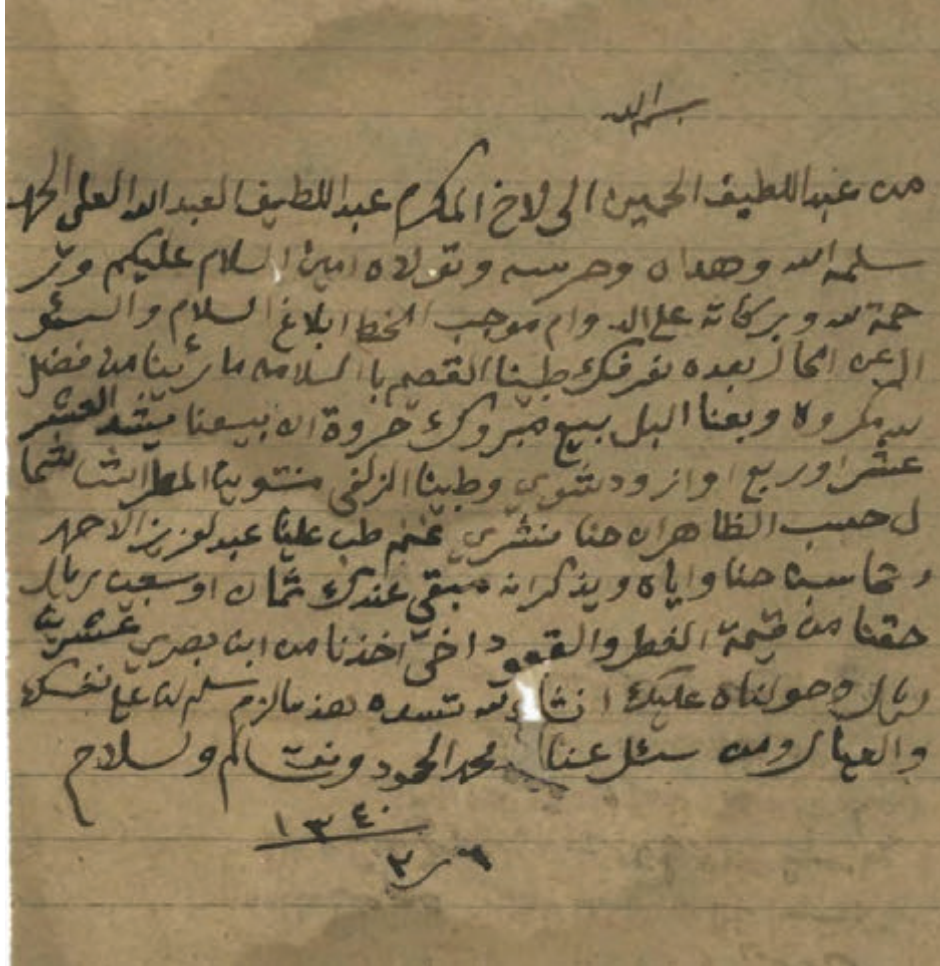 بسم الله
من عبد اللطيف الحمين الى لاخ المكرم عبد اللطيف العبد الله العلي الحمد
سلمه الله وهداه وحرسه وتولاه امين السلام عليكم ور
حمة لله وبركاته على الدوام موجب الخط ابلاغ السلام والسئو
ال عن الحال بعده نعرفك طبنا القصيم باالسلامه ما رئينا من فضل
لله مكروه وبعنا البل بيع مبروك حروة ان بيعنا العشر
عشر اوربع اوازود شوي وطبينا الزلفى منتوين المطراش لشما
ل حسب الظاهر ان حنا منشري غنم طب علينا عبد لعزيز الاحمد
وتحاسبنا حنا واياه ويذكر انه مبقي عندك ثمان اوسبعين ريال
حقنا من قيمة الفطر والقعود اخي اخذنا من ابن بصري عشرين
ريال وحولناه عليك انشاء لله تسده هذ مالزم سلم لنا على نفسك
والعيال ومن سئل عنا محمد المحمود ونت سالم ولسلام
١٣٤٠
٦ ر ٢